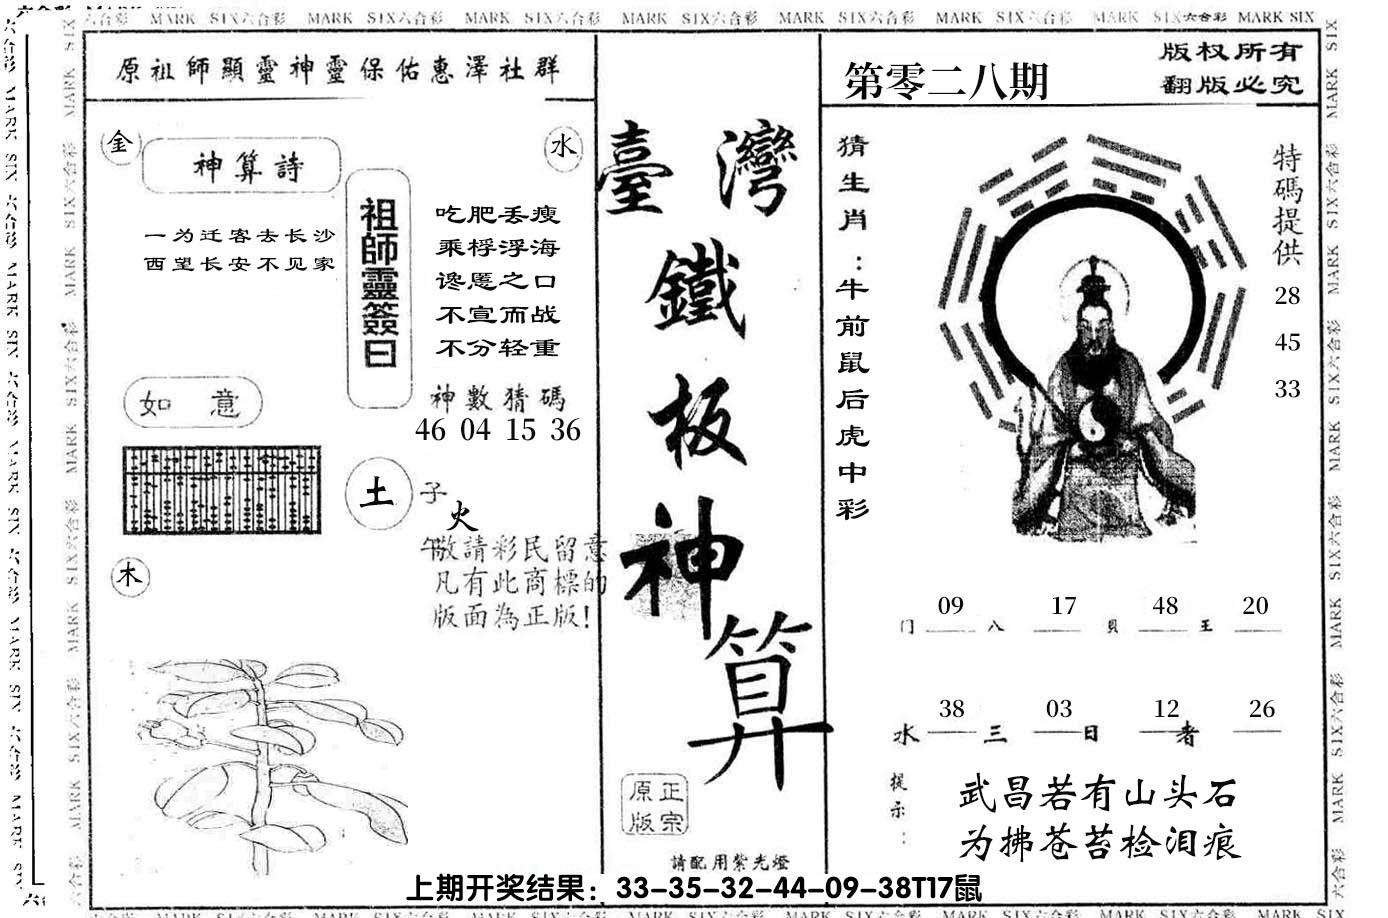 六合彩 MARK SIX六合彩 MARK SIX六合彩 MARK SIX六合彩 MARK SIX六合彩 MARK SIX六合彩 MARK SIX六合彩 MARK SIX六合彩 MARK SIX
原祖師顯靈神靈保佑惠澤社群
金
神算詩
水
一为迁客去长沙
西望长安不见家
祖師靈簽曰
吃肥丢瘦
乘桴浮海
谗慝之口
不宣而战
不分轻重
神數猜碼
46 04 15 36
如 意
土
子
火
午
木
敬請彩民留意
凡有此商標的
版面為正版!
臺灣
鐵
板
神
算
正宗
原版
請配用紫光燈
第零二八期
版权所有
翻版必究
猜生肖:牛前鼠后虎中彩
特碼提供
28
45
33
09 17 48 20
门 八 貝 王
38 03 12 26
水 三 日 者
提示:
武昌若有山头石
为拂苍苔检泪痕
上期开奖结果：33-35-32-44-09-38T17鼠